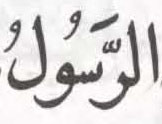 الرَّسُولُ